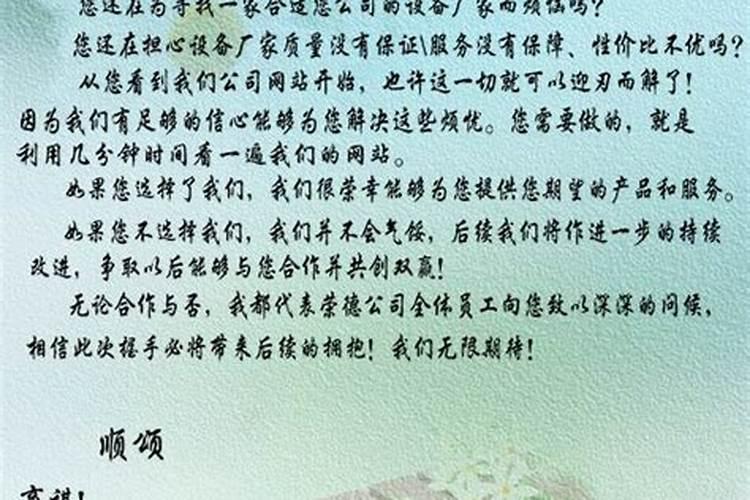 您还在为寻找一家合适您公司的设备厂家而烦恼吗？
您还在担心设备厂家质量没有保证\服务没有保障、性价比不优吗？
从您看到我们公司网站开始，也许这一切就可以迎刃而解了！
因为我们有足够的信心能够为您解决这些烦忧。您需要做的，就是
利用几分钟时间看一遍我们的网站。
如果您选择了我们，我们很荣幸能够为您提供您期望的产品和服务。
如果您不选择我们，我们并不会气馁，后续我们将作进一步的持续
改进，争取以后能够与您合作并共创双赢！
无论合作与否，我都代表荣德公司全体员工向您致以深深的问候，
相信此次握手必将带来后续的拥抱！我们无限期待！
顺颂
商祺！